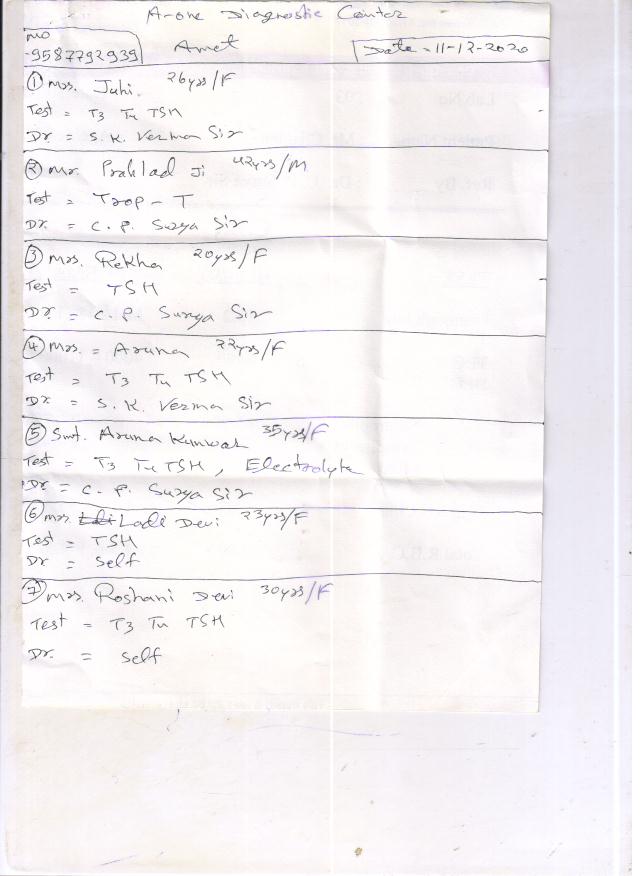 A-one Diagnostic Center
MO
-9587792939
Amet
Date = 11-12-2020
① Mrs. Juhi. 26yrs/F
Test = T3 T4 TSH
Dr = S. K. Verma Sir
② Mr. Prahlad Ji 42yrs/M
Test = Trop - T
Dr. = C. P. Surya Sir
③ Mrs. Rekha 20yrs/F
Test = TSH
Dr. = C. P. Surya Sir
④ Mrs. = Aruna 22yrs/F
Test = T3 T4 TSH
Dr. = S. K. Verma Sir
⑤ Smt. Aruna Kunwar 35yrs/F
Test = T3 T4 TSH, Electrolyte
Dr. = C. P. Surya Sir
⑥ Mrs. Ladi Devi 23yrs/F
Test = TSH
Dr = Self
⑦ Mrs. Roshani Devi 30yrs/F
Test = T3 T4 TSH
Dr. = Self